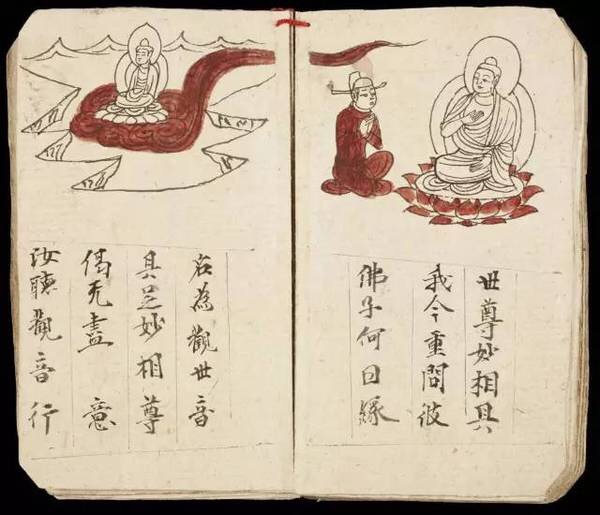 世尊妙相具
我今重問彼
佛子何囙緣
名為觀世音
具足妙相尊
偈无盡意
汝聽觀音行